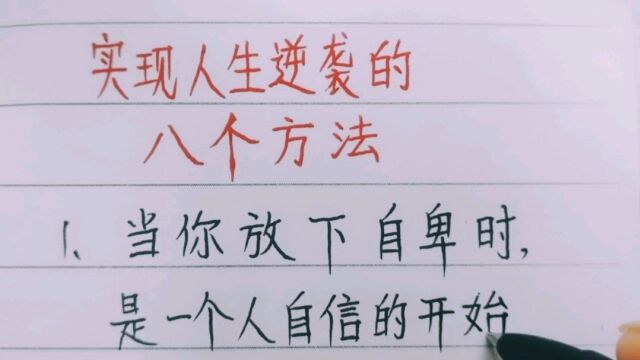 实现人生逆袭的
八个方法
1、当你放下自卑时,
是一个人自信的开始